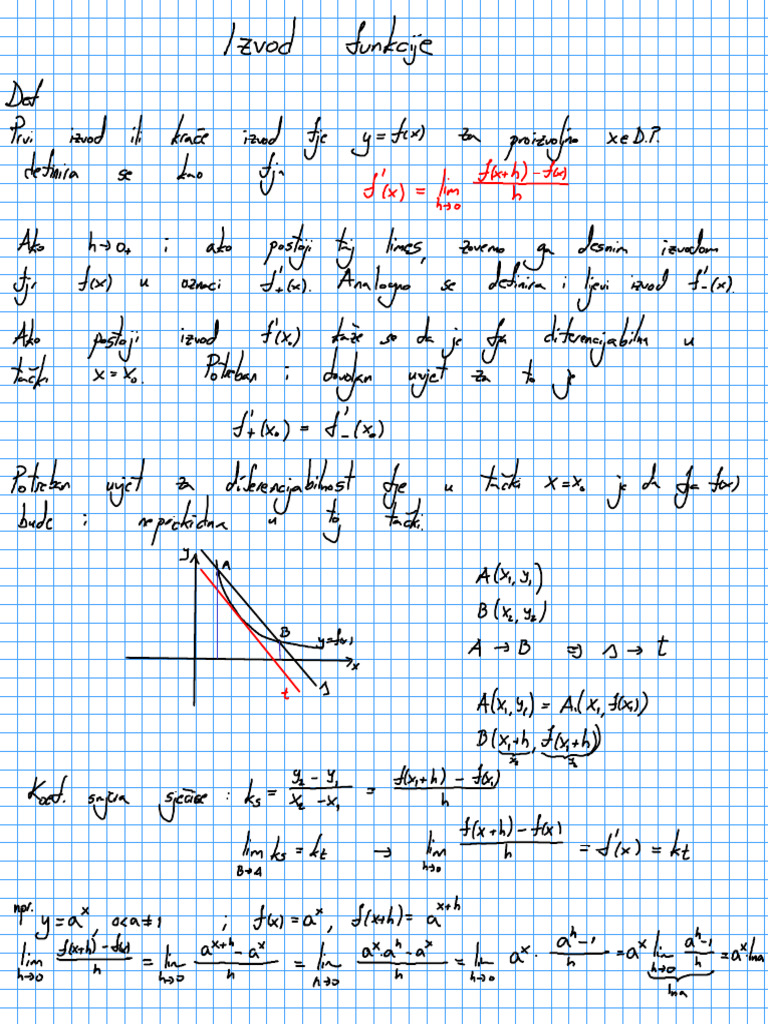 Izvod funkcije
Def
Prvi izvod ili kraće izvod fje y=f(x) za proizvoljno x∈D.P.
definira se kao fja f'(x) = lim_{h→0} (f(x+h)-f(x))/h
Ako h→0₊ i ako postoji taj limes, zovemo ga desnim izvodom
fje f(x) u oznaci f'₊(x). Analogno se definira i ljevi izvod f'₋(x).
Ako postoji izvod f'(x₀) kaže se da je fja diferencijabilna u
tački x=x₀. Potreban i dovoljan uvjet za to je
f'₊(x₀) = f'₋(x₀)
Potreban uvjet za diferencijabilnost fje u tački x=x₀ je da fja f(x)
bude i neprekidna u toj tački.
y A B y=f(x) x t s
A(x₁,y₁)
B(x₂,y₂)
A→B ⇒ s→t
A(x₁,y₁) = A(x₁,f(x₁))
B(x₁+h, f(x₁+h))
x₂ y₂
Koef. smjera sječice: kₛ = (y₂-y₁)/(x₂-x₁) = (f(x₁+h)-f(x₁))/h
lim_{B→A} kₛ = kt → lim_{h→0} (f(x+h)-f(x))/h = f'(x) = kt
npr. y=aˣ, 0<a≠1 ; f(x)=aˣ, f(x+h)= a^{x+h}
lim_{h→0} (f(x+h)-f(x))/h = lim_{h→0} (a^{x+h}-aˣ)/h = lim_{h→0} (aˣ·aʰ-aˣ)/h = lim_{h→0} aˣ·(aʰ-1)/h = aˣ lim_{h→0} (aʰ-1)/h = aˣ·lna
lna